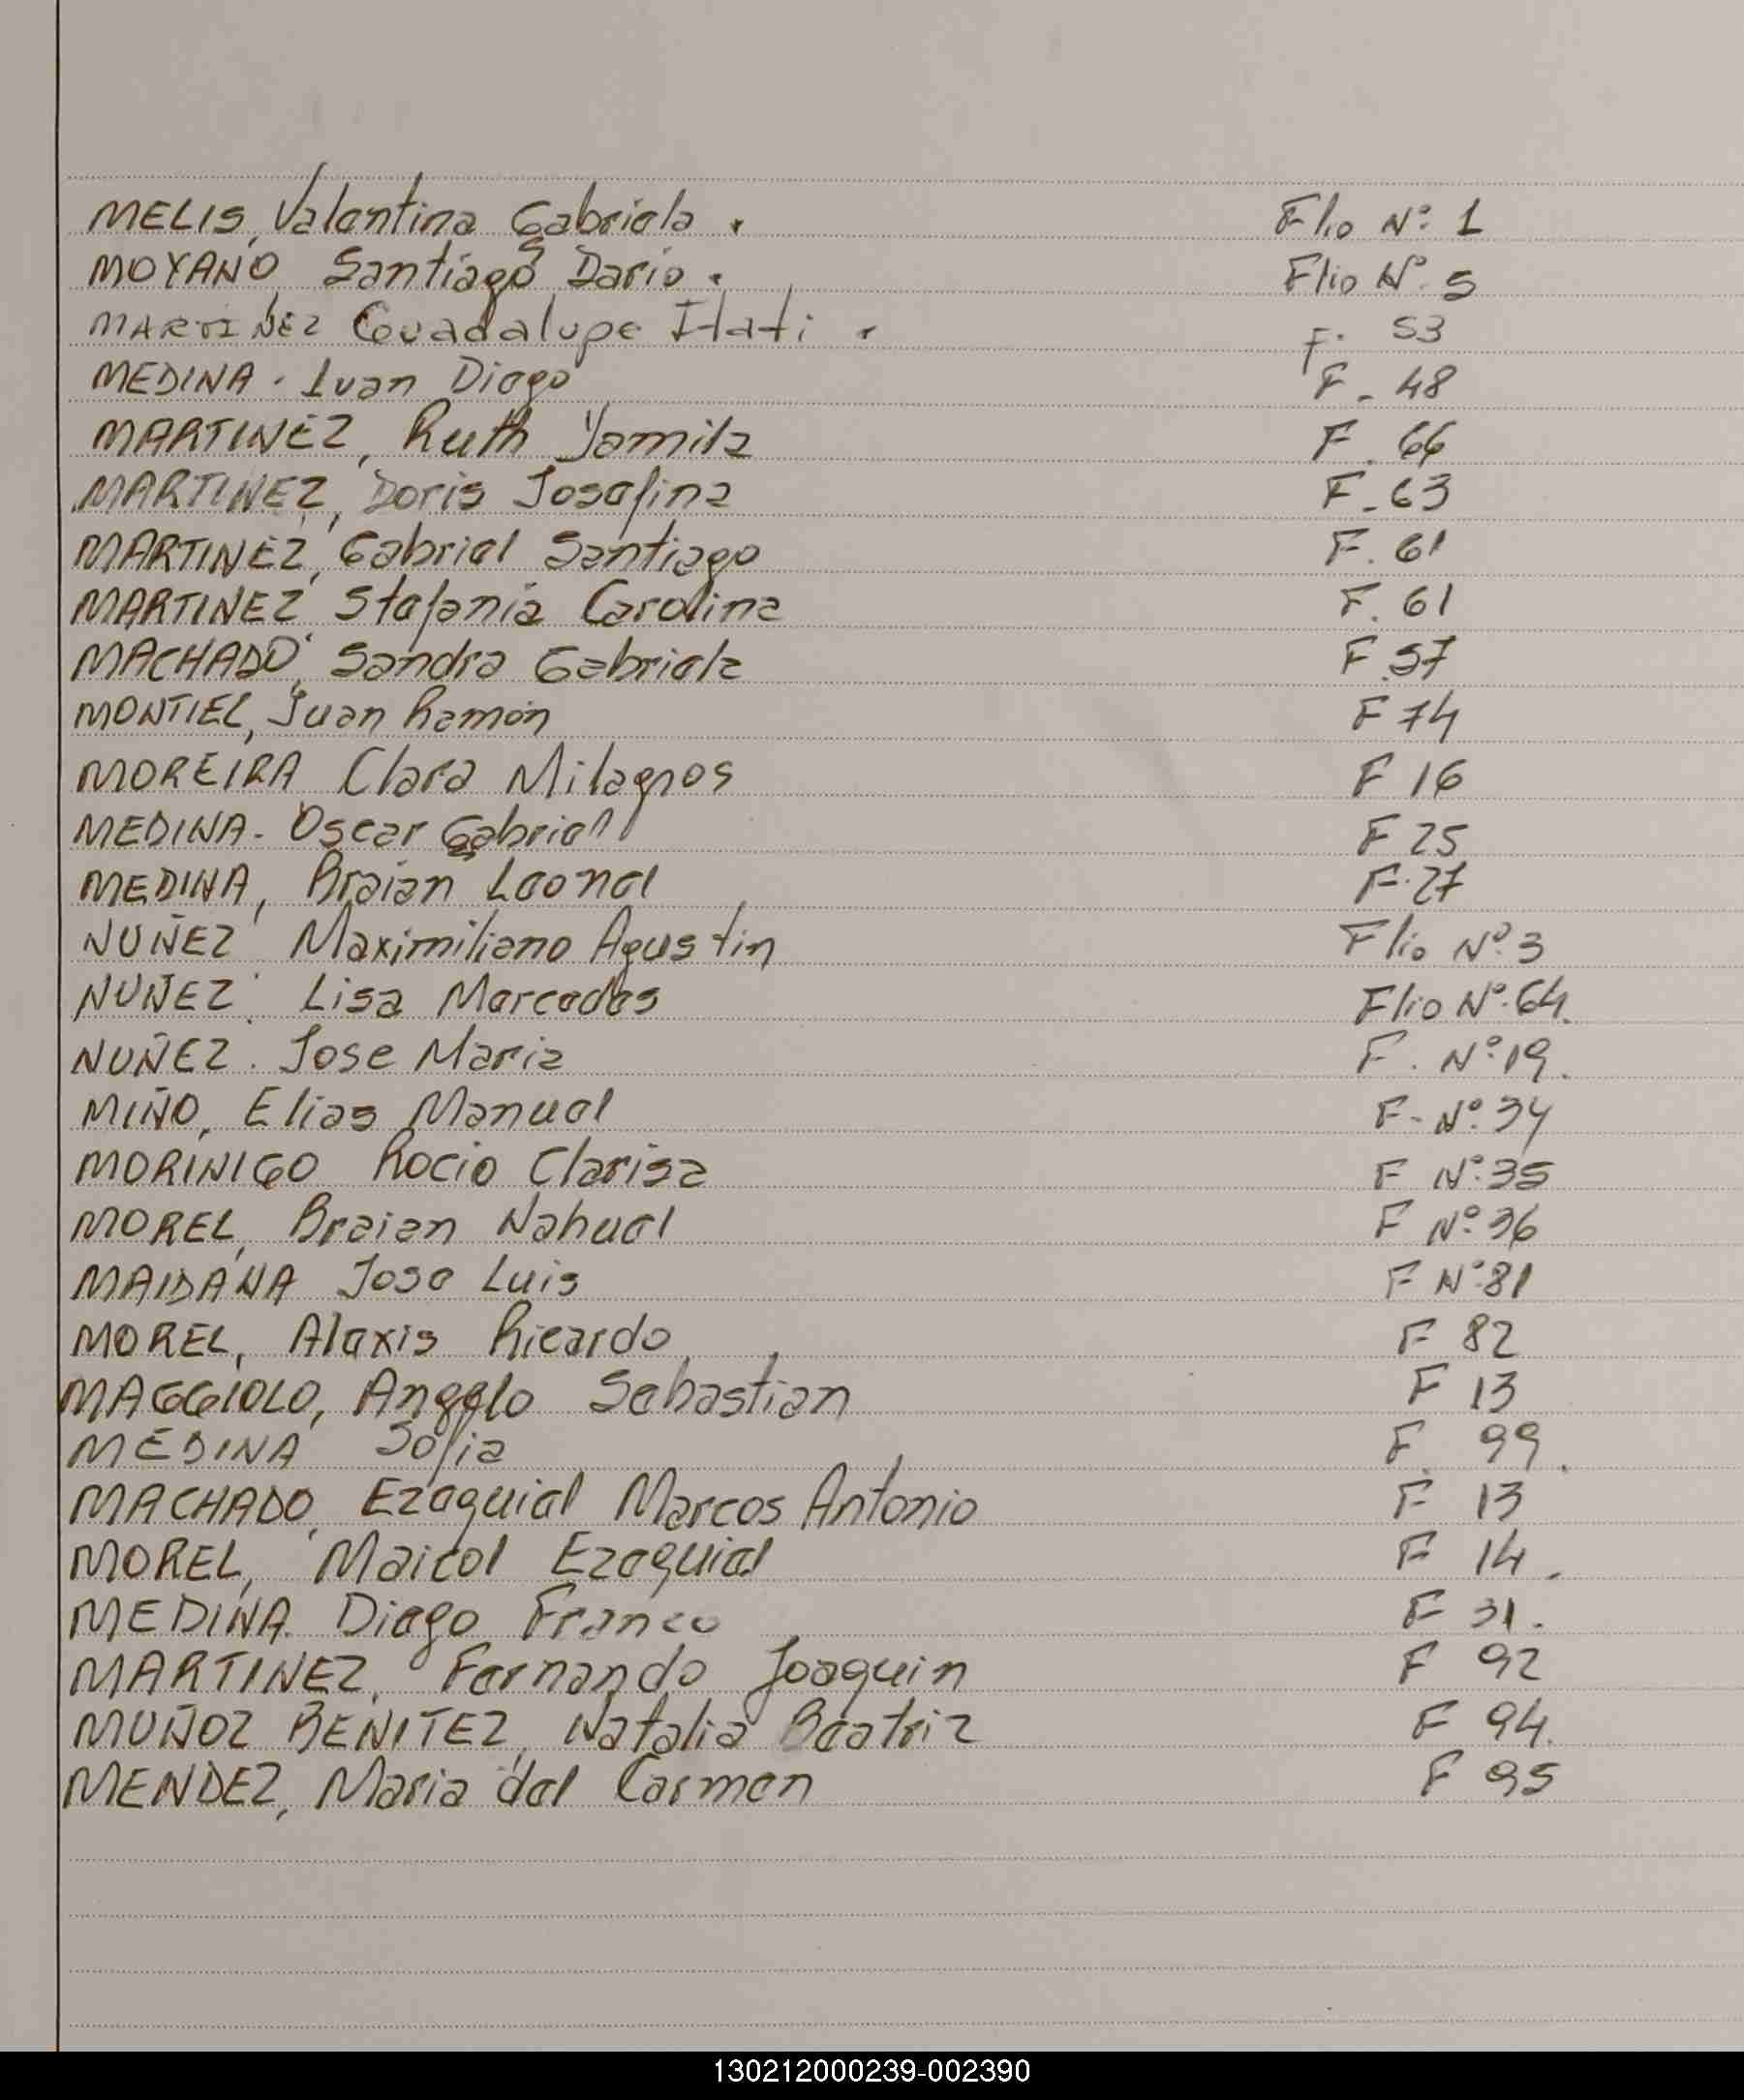 MELIS, Valentina Gabriela . Flio Nº: 1
MOYANO Santiago Dario . Flio Nº. 5
MARTINEZ Guadalupe Itati . F. 53
MEDINA . Ivan Diego F - 48
MARTINEZ, Ruth Yamila F. 66
MARTINEZ, Doris Josefina F - 63
MARTINEZ, Gabriel Santiago F. 61
MARTINEZ Stefania Carolina F. 61
MACHADO, Sandra Gabriela F. 57
MONTIEL, Juan Ramón F 74
MOREIRA Clara Milagros F 16
MEDINA - Oscar Gabriel F 25
MEDINA, Braian Leonel F. 27
NUÑEZ Maximiliano Agustin Flio Nº. 3
NUÑEZ. Lisa Mercedes Flio Nº. 64.
NUÑEZ. Jose Maria F. Nº: 19.
MIÑO, Elias Manuel F - Nº: 34
MORINIGO Rocio Clarisa F Nº: 35
MOREL, Braian Nahuel F Nº: 36
MAIDANA Jose Luis F Nº: 81
MOREL, Alexis Ricardo F 82
MAGGIOLO, Angelo Sebastian F 13
MEDINA Sofia F. 99.
MACHADO, Ezequiel Marcos Antonio F 13
MOREL, Maicol Ezequiel F 14.
MEDINA. Diego Franco F 31.
MARTINEZ, Fernando Joaquin F 92
MUÑOZ BENITEZ, Natalia Beatriz F 94.
MENDEZ, Maria del Carmen F 95
130212000239-002390